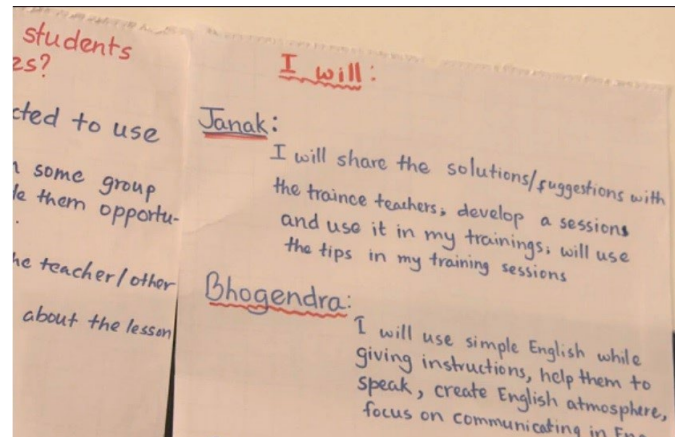 students
es?
cted to use
n some group
le them opportu-
.
he teacher/other
about the lesson
I will:
Janak:
I will share the solutions/suggestions with
the traince teachers, develop a sessions
and use it in my trainings, will use
the tips in my training sessions
Bhogendra:
I will use simple English while
giving instructions, help them to
speak, create English atmosphere,
focus on communicating in